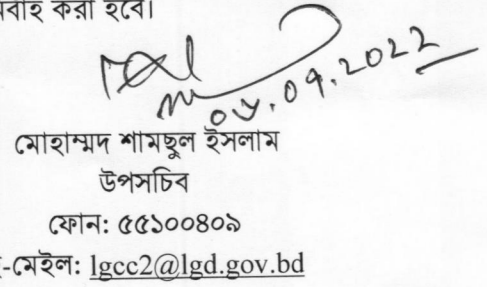 করা হবে।
০৮.০৭.২০২২
মোহাম্মদ শামছুল ইসলাম
উপসচিব
ফোন: ৫৫১০০৪০৯
-মেইল: lgcc2@lgd.gov.bd